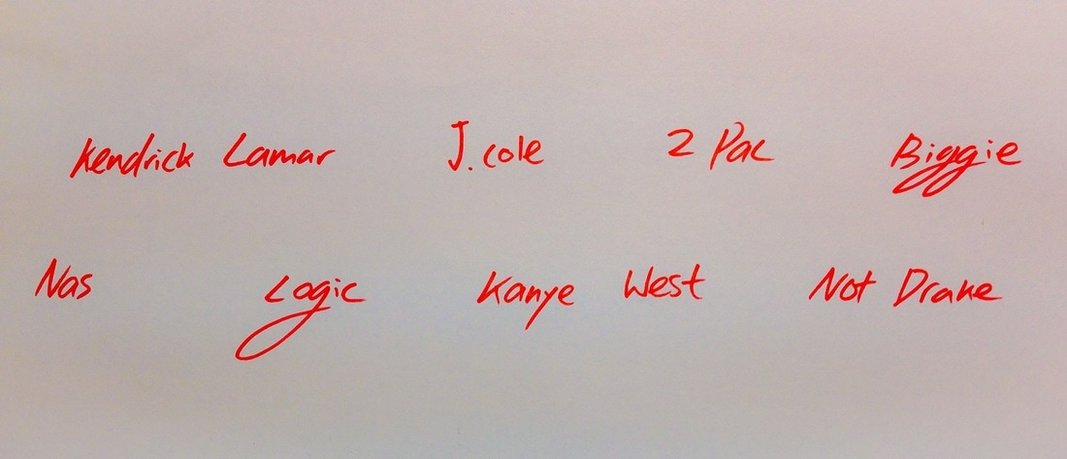 Kendrick Lamar J. cole 2 Pac Biggie
Nas Logic Kanye West Not Drake